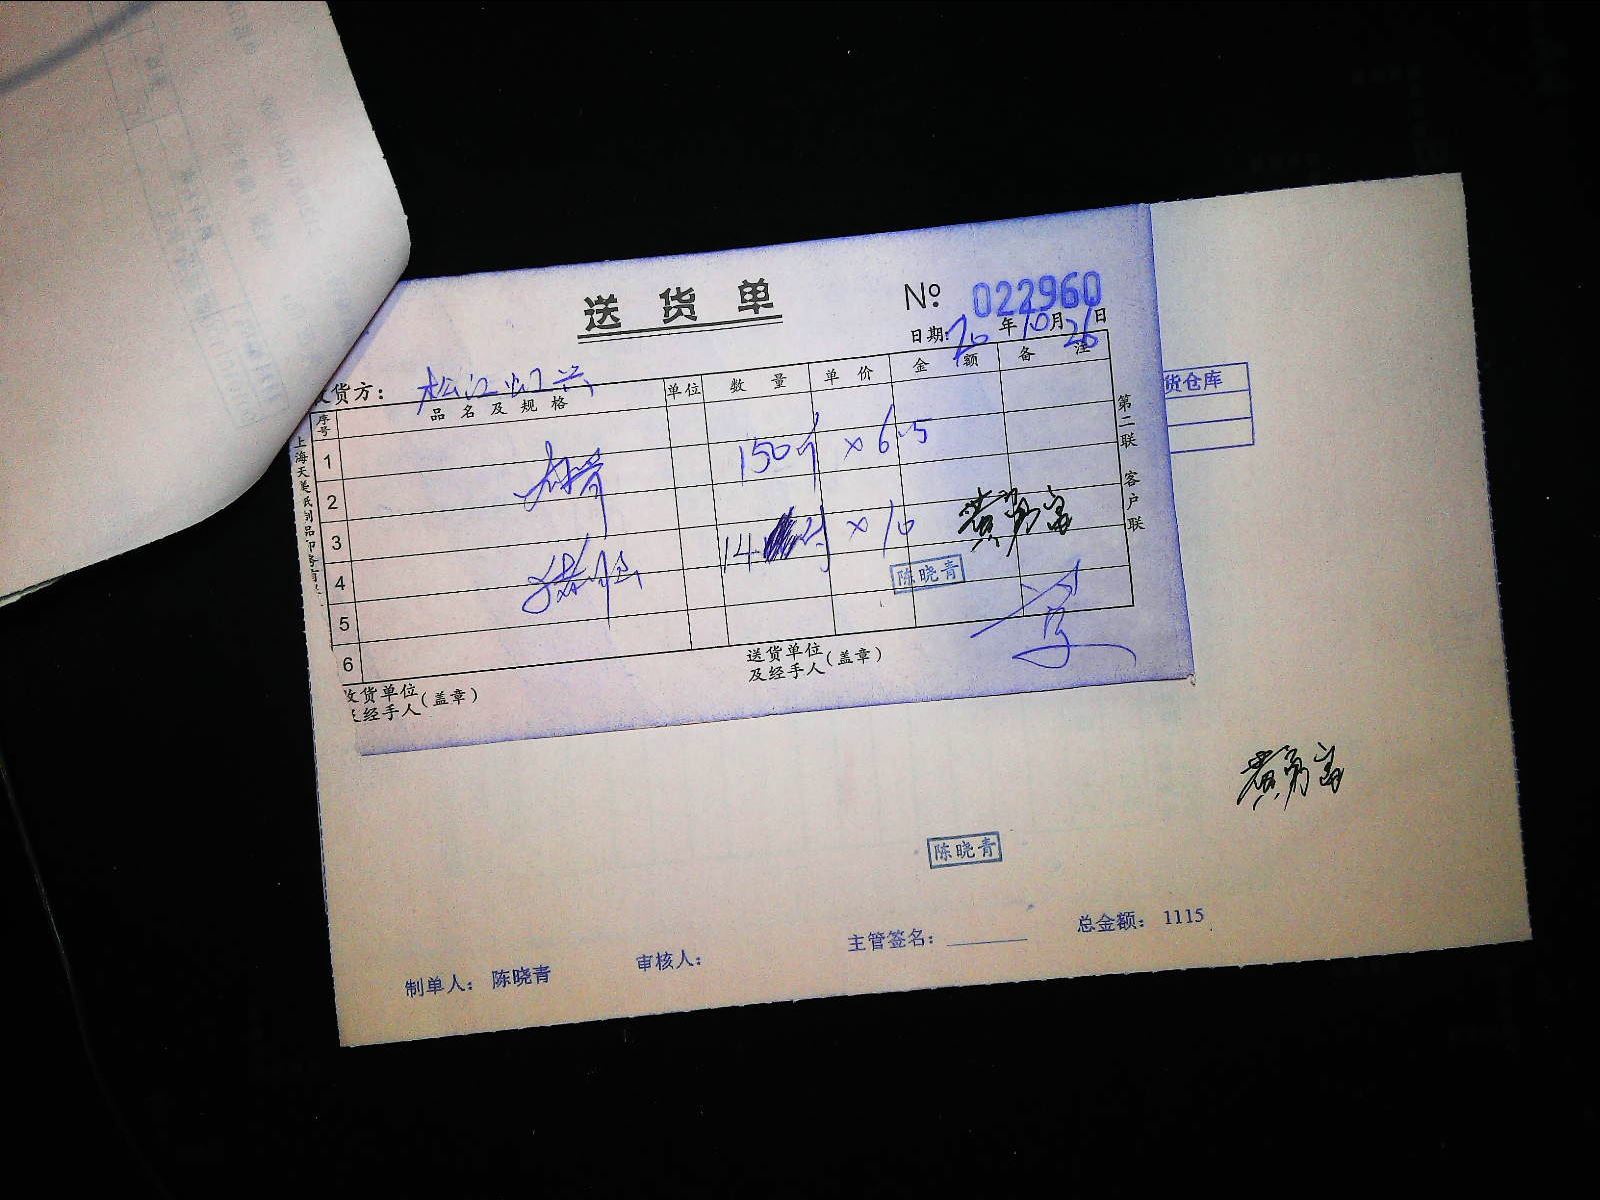 送货单
No 022960
日期: 20年10月26日
货方: 松江
序号 品名及规格 单位 数量 单价 金额 备注
1
150斤 × 6.5
2
3
14 斤 × 10 黄勇富
4
陈晓青
5
6
收货单位(盖章)
及经手人
送货单位(盖章)
及经手人
第二联 客户联
上海天美纸制品印务有
货仓库
黄勇富
陈晓青
制单人: 陈晓青 审核人: 主管签名: 总金额: 1115